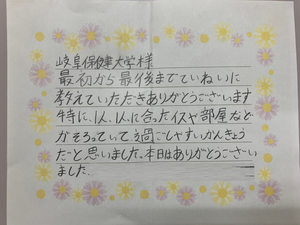 岐阜保健大学様
最初から最後までていねいに
教えていただきありがとうございます
特に、人、人に合ったイスや部屋など
がそろっていて過ごしやすいかんきょう
だと思いました。本日はありがとうござい
ました。